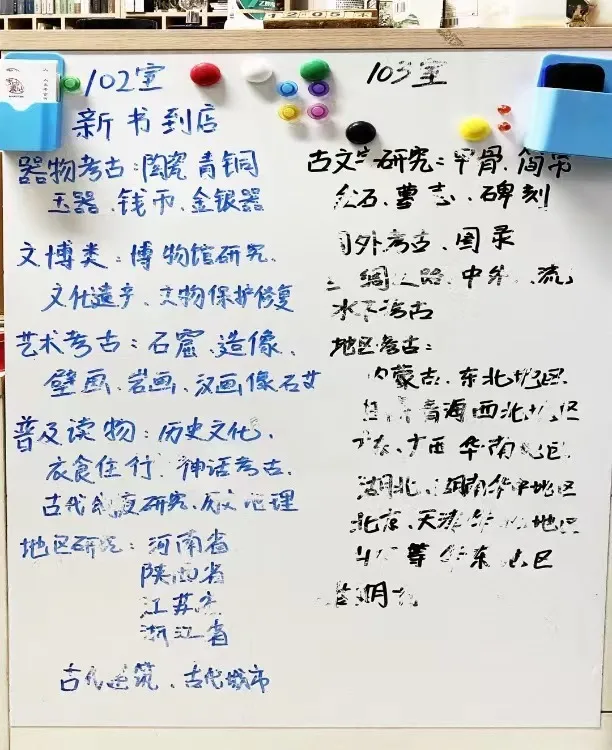 102室
新书到店
器物考古：陶瓷.青铜
玉器.钱币.金银器
文博类：博物馆研究.
文化遗产、文物保护修复
艺术考古：石窟.造像.
壁画.岩画.汉画像石
普及读物：历史文化.
衣食住行.神话考古.
古代制度研究.历史地理
地区研究：河南省
陕西省
江苏省
浙江省
古代建筑、古代城市
103室
古文字研究：甲骨.简帛
石、墓志、碑刻
外考古、图录
绸之路.中外 流
水下考古
地区考古：
内蒙古.东北地区.
青海西北地区
广西华南地区
湖北、湖南华中地区
北京、天津华 地区
等华东地区
明